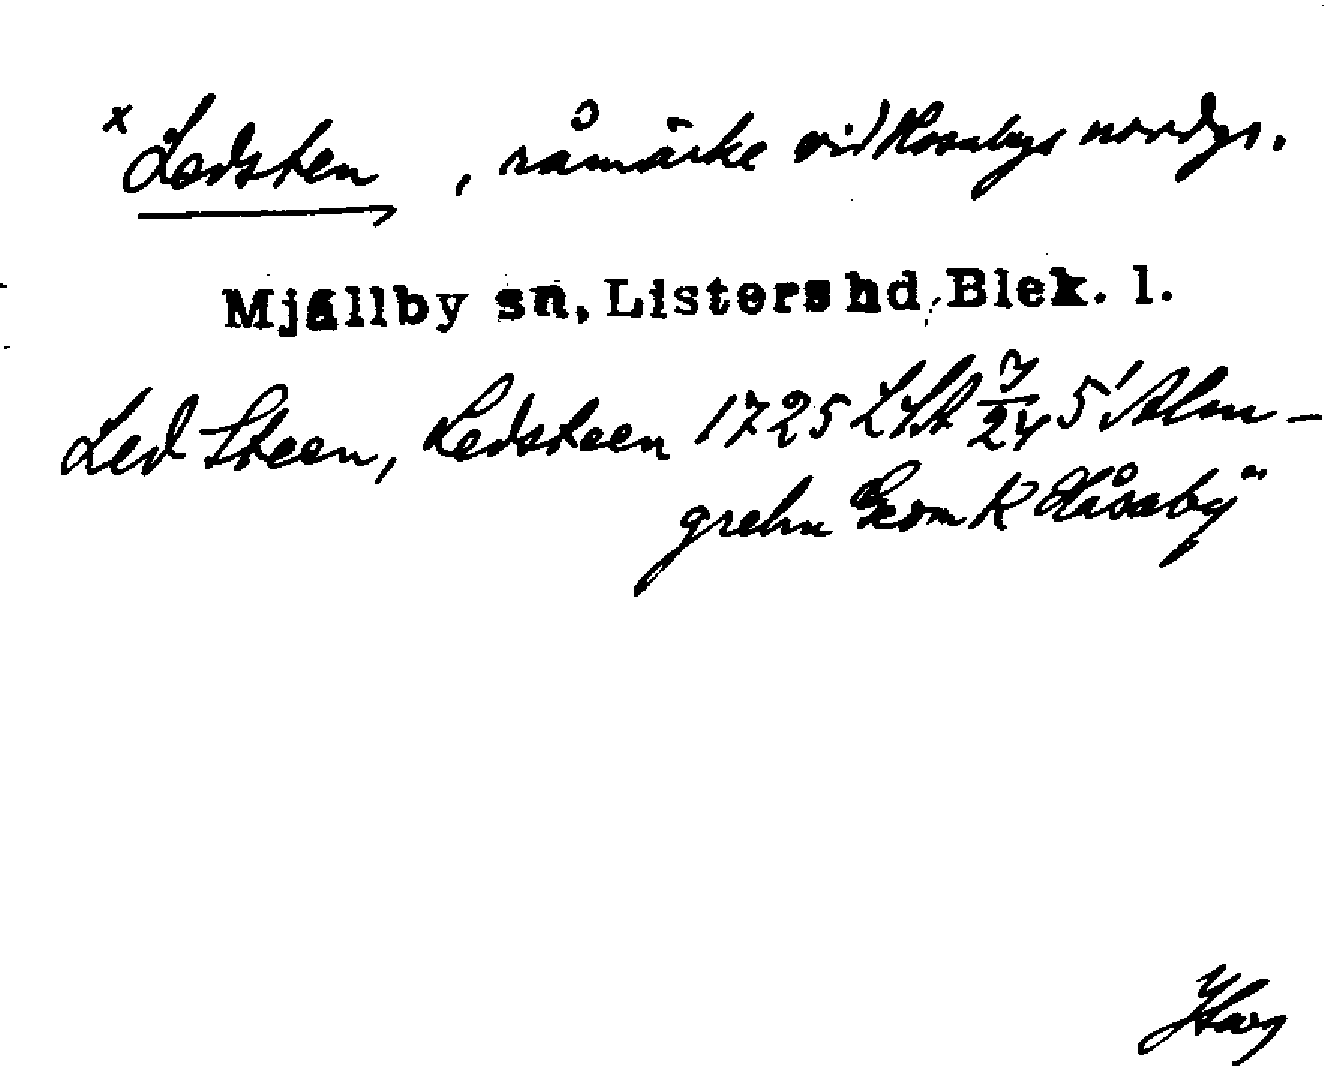 x Ledsten, råmärke vid Hosabys nordgr.
Mjällby sn, Listers hd, Blek. l.
Led Steen, Ledsteen 1725 LSA 7/24 5 Alm-
grehn Geom K Håsaby